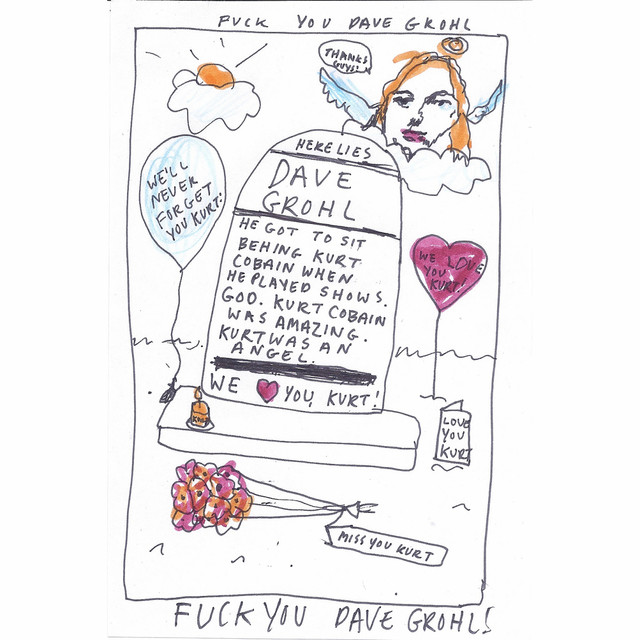 FUCK YOU DAVE GROHL
THANKS
GUYS!
WE'LL
NEVER
FORGET
YOU KURT!
HERE LIES
DAVE
GROHL
HE GOT TO SIT
BEHING KURT
COBAIN WHEN
HE PLAYED SHOWS.
GOD. KURT COBAIN
WAS AMAZING.
KURT WAS AN
ANGEL.
WE YOU, KURT!
WE LOVE
YOU
KURT!
LOVE
YOU
KURT
MISS YOU KURT
FUCK YOU DAVE GROHL!